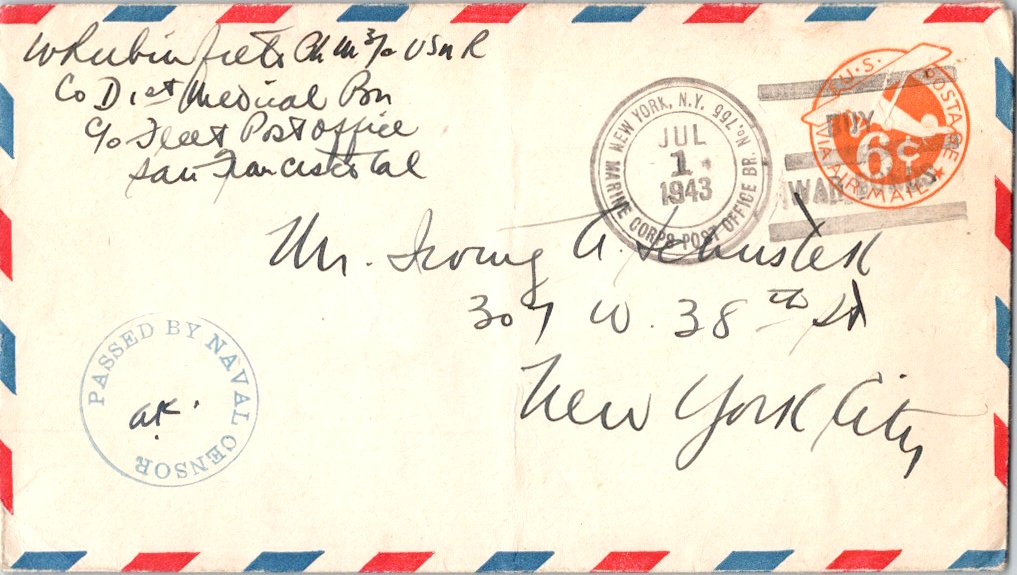 W Rubin
USNR
Co D 1st Medical Bn
c/o Fleet Post Office
San Francisco Cal
NEW YORK, N.Y. No. 765
MARINE CORPS POST OFFICE BR.
JUL
1
1943
BUY
WAR
U.S. POSTAGE
6¢
VIA AIR MAIL
Mr. Irving A. Schuster
307 W. 38th St
New York City
PASSED BY NAVAL CENSOR